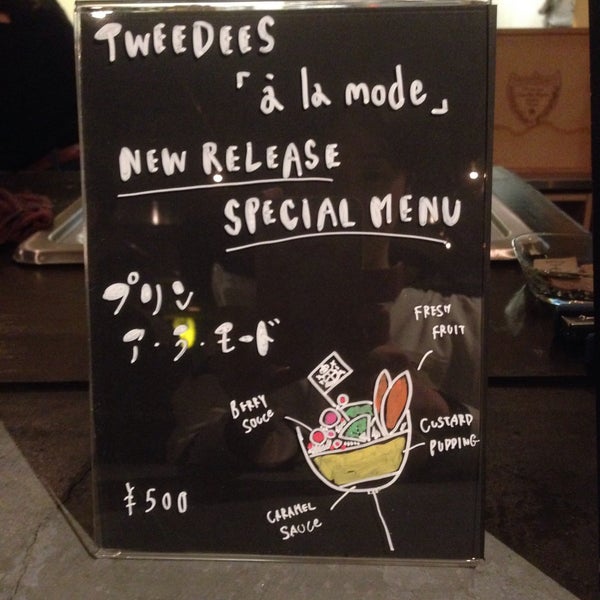 TWEEDEES
「à la mode」
NEW RELEASE
SPECIAL MENU
プリン
ア・ラ・モード
FRESH
FRUIT
BERRY
SOUCE
CUSTARD
PUDDING
CARAMEL
SAUCE
¥500